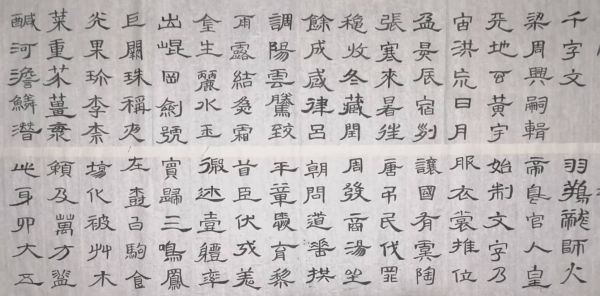 千字文
梁周興嗣輯
天地玄黃宇
宙洪荒日月
盈昃辰宿列
張寒來暑往
秋收冬藏閏
餘成歲律呂
調陽雲騰致
雨露結為霜
金生麗水玉
出崐岡劍號
巨闕珠稱夜
光果珍李柰
菜重芥薑海
鹹河澹鱗潛
羽翔龍師火
帝鳥官人皇
始制文字乃
服衣裳推位
讓國有虞陶
唐弔民伐罪
周發商湯坐
朝問道垂拱
平章愛育黎
首臣伏戎羌
遐邇壹體率
賓歸王鳴鳳
在樹白駒食
場化被艸木
賴及萬方蓋
此身四大五